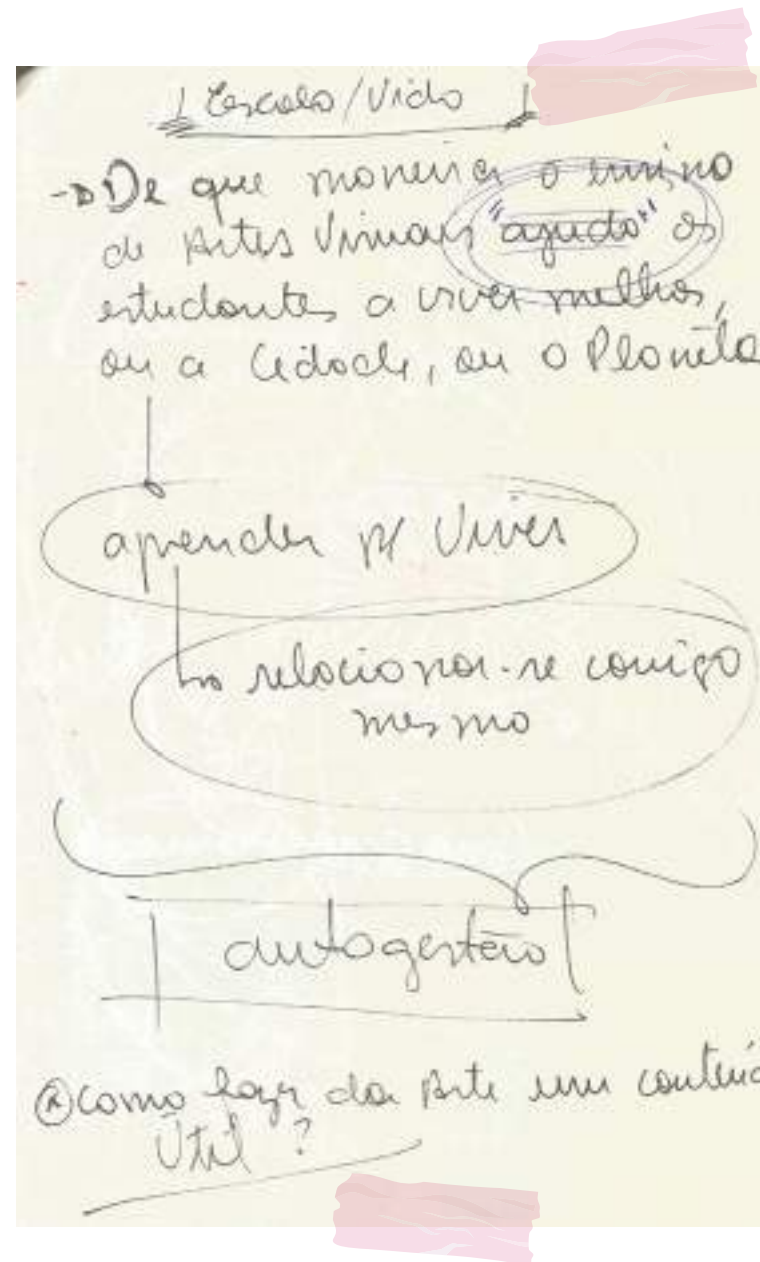 Escola/Vida
De que maneira o ensino
de Artes Visuais "ajuda" os
estudantes a viver melhor,
ou a Cidade, ou o Planeta
aprender p/ Viver
relacionar-se comigo
mesmo
autogestão
Como fazer da Arte um
Útil?